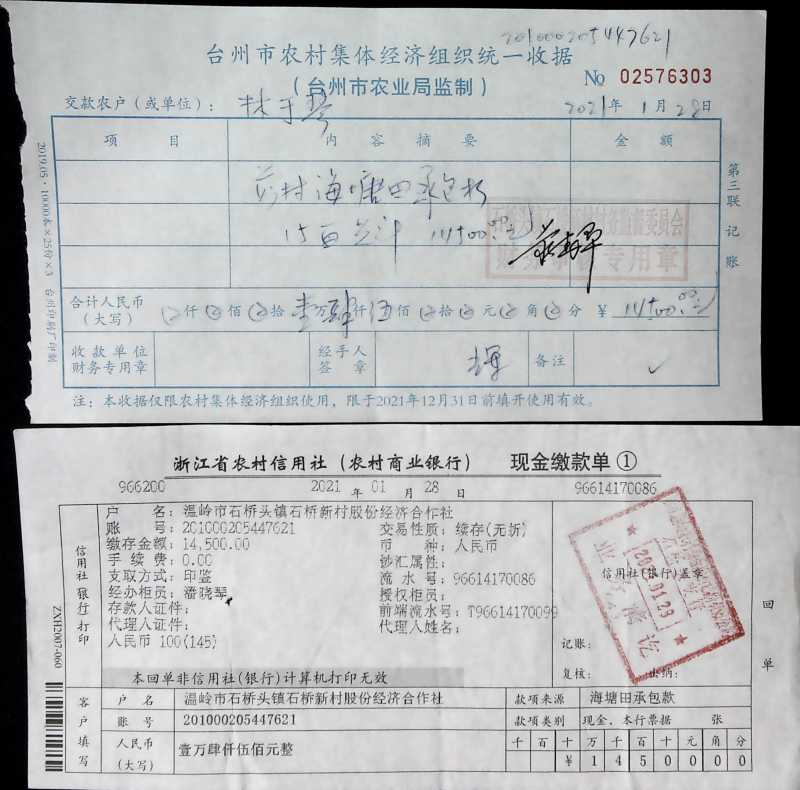 201000205447621
台州市农村集体经济组织统一收据
(台州市农业局监制)
No 02576303
交款农户(或单位): 2021年1月28日
项 目 内 容 摘 要 金 额
村海塘田承包
15亩
财务专用章
合计人民币
(大写)
仟 佰 拾 壹万肆仟伍佰 拾 元 角 分 ¥
收款单位
财务专用章
经手人
签 章
备注
注:本收据仅限农村集体经济组织使用,限于2021年12月31日前填开使用有效。
2019.05·10000本×25份×3 台州印刷厂印制
第三联 记账
浙江省农村信用社(农村商业银行) 现金缴款单①
966200 2021年01月28日 96614170086
户 名:温岭市石桥头镇石桥新村股份经济合作社
账 号:201000205447621 交易性质:续存(无折)
缴存金额:14,500.00 币 种:人民币
手 续 费:0.00 涉汇属性:
支取方式:印鉴 流 水 号:96614170086
经办柜员:潘晓琴 授权柜员:
存款人证件: 前端流水号:T96614170099
代理人证件: 代理人姓名:
人民币 100(145)
信用社(银行)打印
信用社(银行)盖章
记账:
复核: 出纳:
本回单非信用社(银行)计算机打印无效
回单
ZXH2007-060
客户填写
户 名 温岭市石桥头镇石桥新村股份经济合作社 款项来源 海塘田承包款
账 号 201000205447621 款项类别 现金、本行票据 张
人民币
(大写) 壹万肆仟伍佰元整
千 百 十 万 千 百 十 元 角 分
¥ 1 4 5 0 0 0 0